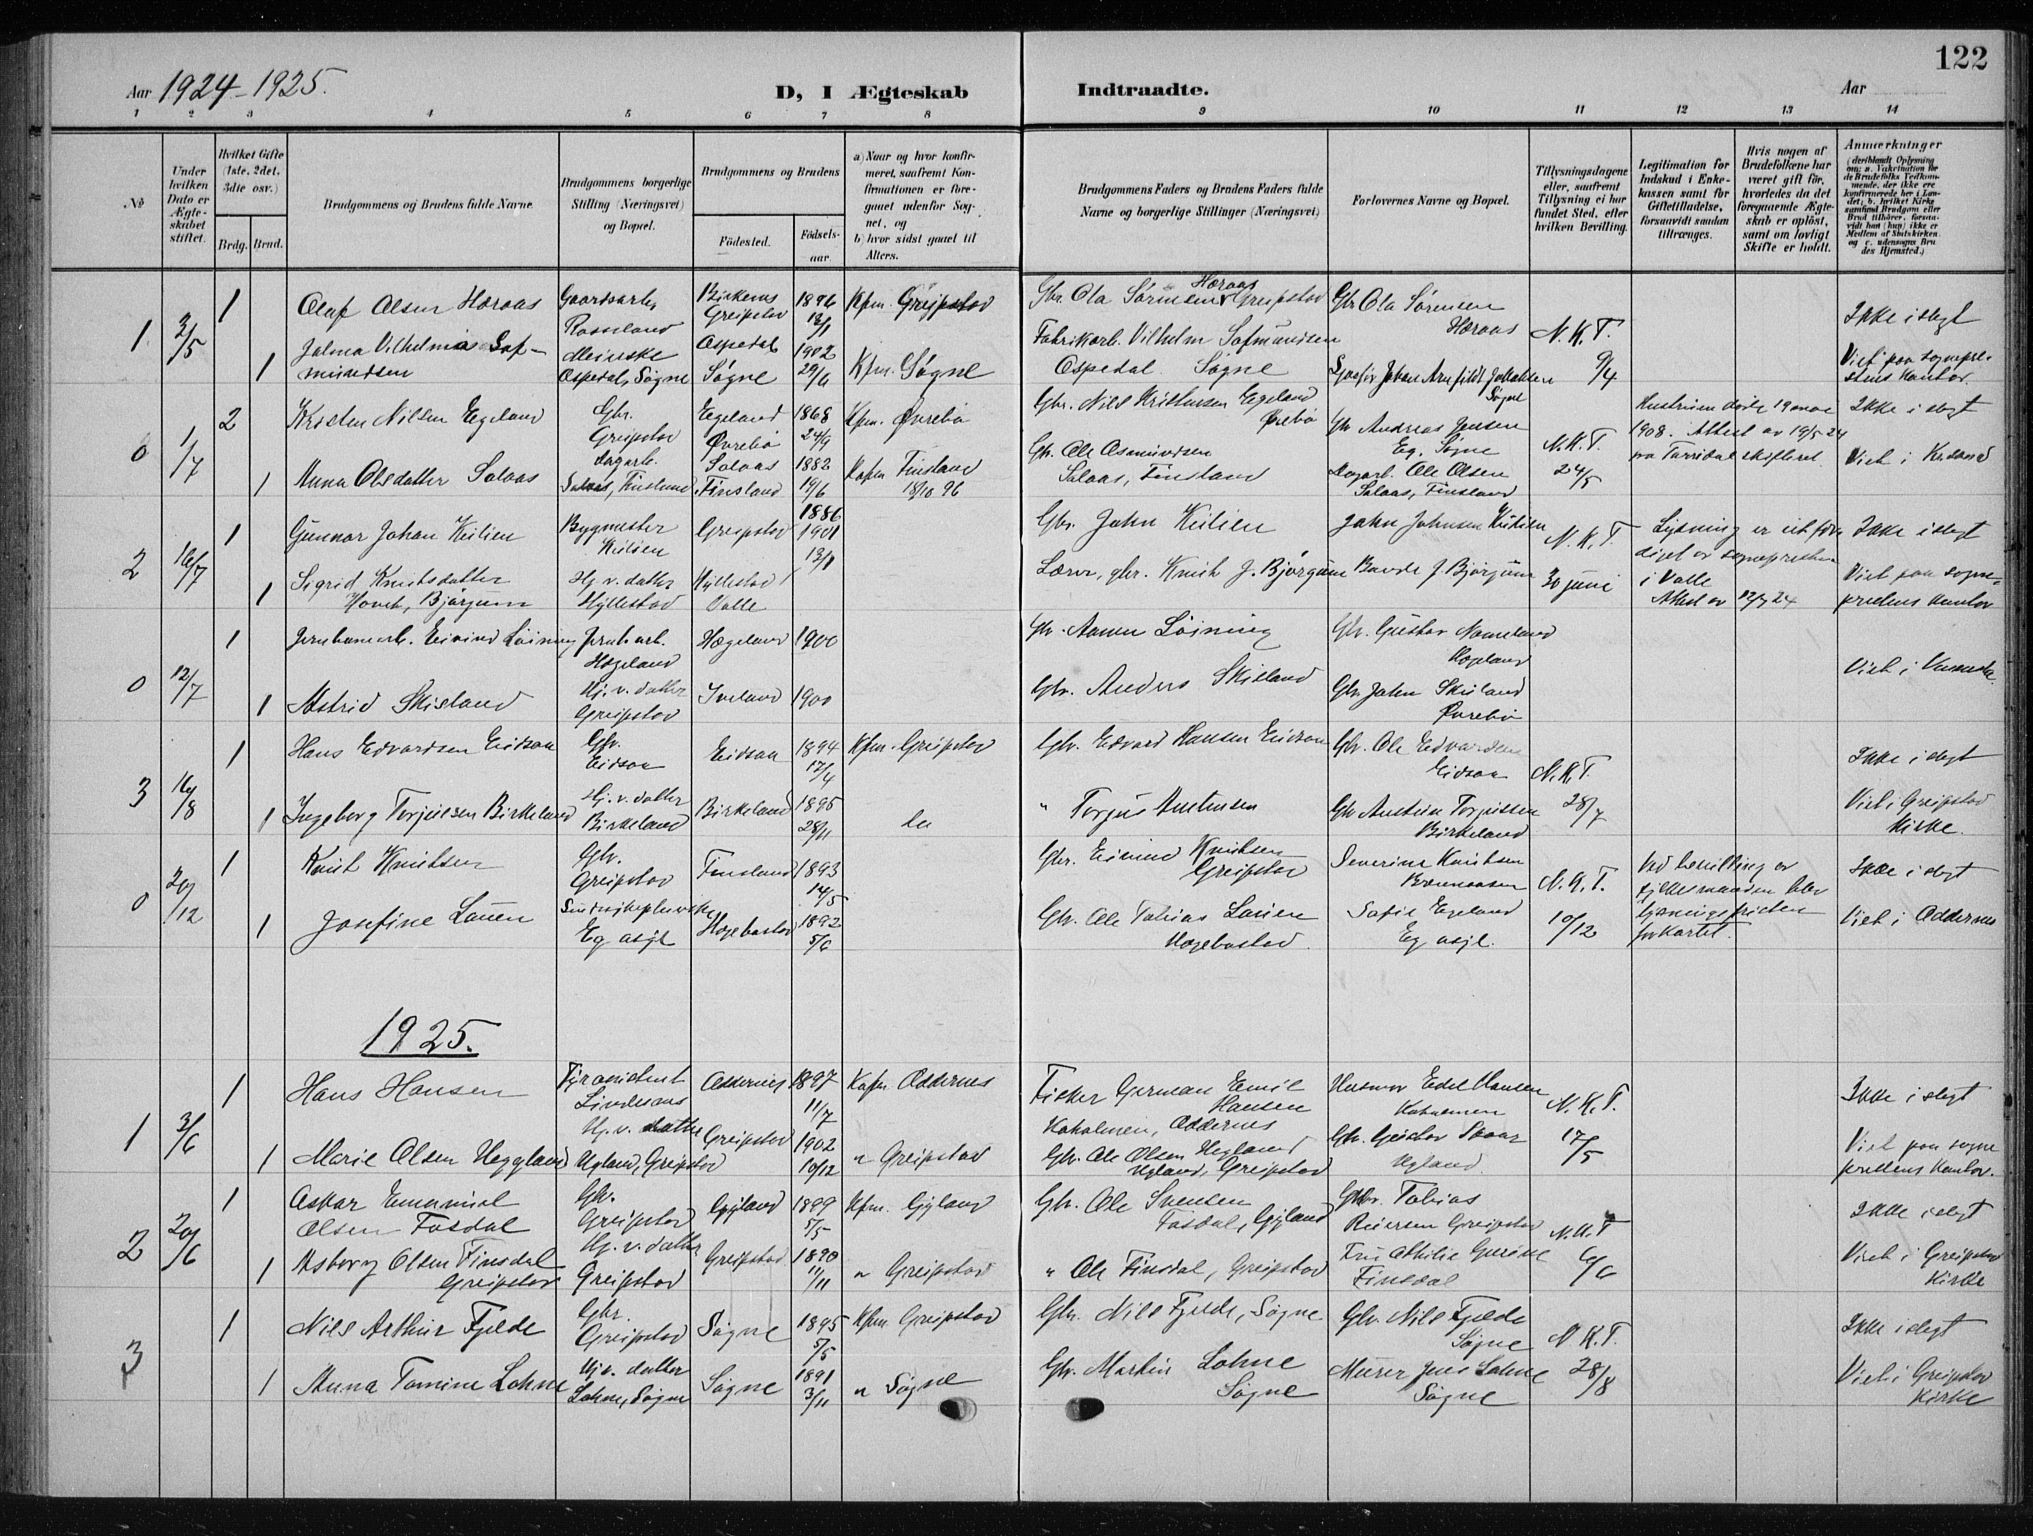 122
Aar 1924-1925.
D, I Ægteskab Indtraadte.
Aar
1 2 3 4 5 6 7 8 9 10 11 12 13 14
No
Under hvilken Dato er Ægteskabet stiftet.
Hvilket Gifte (1ste, 2det, 3die osv.)
Brdg. Brud.
Brudgommens og Brudens fulde Navne.
Brudgommens borgerlige Stilling (Næringsvei) og Bopæl.
Brudgommens og Brudens
Fødested. Fødselsaar.
a) Naar og hvor konfirmeret, saafremt Konfirmationen er foregaaet udenfor Sognet, og
b) hvor sidst gaaet til Alters.
Brudgommens Faders og Brudens Faders fulde Navne og borgerlige Stillinger (Næringsvei)
Forlovernes Navne og Bopæl.
Tillysningsdagene eller, saafremt Tillysning ei har fundet Sted, efter hvilken Bevilling.
Legitimation for Indskud i Enkekassen samt for Giftetilladelse, forsaavidt saadan tiltrænges.
Hvis nogen af Brudefolkene har været gift før, hvorledes da det foregaaende Ægteskab er opløst, samt om lovligt Skifte er holdt.
Anmærkninger
1 3/5
1 Olaf Olsen Høraas Gaardsarb. Rosseland Birkenes Greipstad 1896 13/1 Kfm. Greipstad Gbr. Ola Sørensen Høraas Greipstad Gbr Ola Sørensen Høraas N.K.T. 9/4 Ikke i slegt
1 Jalma Vilhelmia Sofmundsen Meierske Ospedal, Søgne Ospedal Søgne 1902 29/6 Kfm. Søgne Fabrikarb. Vilhelm Sofmundsen Ospedal Søgne Johan Arnfildt Jakobsen Søgne Viet paa sogneprestens kontor.
0 1/7
2 Kristen Nilsen Egeland Gbr. Greipstad Egeland Øvrebø 1868 24/9 Kfm. Øvrebø Gbr. Nils Kristensen Egeland Øvrebø Gbr Andreas Jensen Eg, Søgne N.K.T. 24/5 Hustruen døde 19 mai 1908. Attest av 19/5 24 fra Torridal skifteret. Ikke i slegt
1 Anna Olsdatter Salaas dagarb. Salaas, Finsland Salaas Finsland 1882 19/6 Kofm Finsland 18/10 96 Gbr. Ole Osmundsen Salaas, Finsland Dagarb. Ole Olsen Salaas, Finsland Viet i Kr.sand
2 16/7
1 Gunnar Johan Keilien Bygmester Keilien Greipstad 1886 Gbr. John Keilien John Johnsen Keilien N.K.T 30 juni Lysning er utfærdiget av sognepresten i Valle Attest av 12/7 24 Ikke i slegt
1 Sigrid Knutsdatter Hovet, Bjørgum Hj. v. datter Hyllestad Hyllestad Valle 1901 13/1 Lærer, gbr. Knut J. Bjørgum Bavde J Bjørgum Viet paa sogneprestens kontor
0 12/7
1 Jernbanearb. Eivind Løining Jernb.arb. Hægeland Hægeland 1900 Gbr. Aanen Løining Gbr. Gustav Nomeland Hægeland
1 Astrid Skisland Hj. v. datter Greipstad Iveland 1900 Gbr. Anders Skisland Gbr John Skisland Øvrebø Viet i Vennesla.
3 16/8
1 Hans Edvardsen Eidsaa Gbr. Eidsaa Eidsaa 1894 17/4 Kfm. Greipstad Gbr. Edvard Hansen Eidsaa Gbr. Ole Edvardsen Eidsaa N.K.T. 28/7 Ikke i slegt
1 Ingeborg Torjussen Birkeland Hj. v. datter Birkeland Birkeland 1895 28/11 do " Torjus Austensen Gbr Austein Torjussen Birkeland Viet i Greipstad Kirke.
0 20/12
1 Knut Knutsen Gbr. Greipstad Finsland 1893 14/5 Gbr. Eivind Knutsen Greipstad Severine Knutsen N.K.T. 10/12 Ved bevilling av fylkesmanden blev lysningsfristen forkortet. Ikke i slegt
1 Josefine Lauen Eg asyl Hægebostad 1892 5/6 Gbr. Ole Tobias Lauen Hægebostad. Sofie Egeland Eg asyl. Viet i Oddernes
1925.
1 3/6
1 Hans Hansen Fyrassistent Lindesnes Oddernes 1897 11/7 Kofm Oddernes Fisker Herman Emil Hansen Kaholmen, Oddernes Husmor Edel Hansen Kaholmen N.K.T. 17/5 Ikke i slegt
1 Marie Olsen Heggland Hj. v. datter Ugland, Greipstad Greipstad 1902 10/12 " Greipstad Gbr. Ole Olsen Hegland Ugland, Greipstad Ugland. Viet paa sogneprestens kontor.
2 20/6
1 Oskar Emanuel Olsen Fosdal Gbr. Greipstad Gyland 1899 5/5 Kfm. Gyland Gbr. Ole Svensen Fosdal, Gyland Gbr. Tobias Reiersen Greipstad N.K.T 6/6 Ikke i slegt
1 Asborg Olsen Finsdal Greipstad Hj. v. datter Greipstad Greipstad 1890 11/11 " Greipstad " Ole Finsdal, Greipstad Fru Othilie Gurine Finsdal Viet i Greipstad Kirke
3
1 Nils Arthur Fjelde Gbr. Greipstad Søgne 1895 5/5 Kfm Greipstad Gbr. Nils Fjelde, Søgne Gbr. Nils Fjelde Søgne N K.T. 28/8 Ikke i slegt
1 Anna Tomine Lohne Hjv. datter Lohne, Søgne Søgne 1891 3/11 " Søgne Gbr. Martin Lohne Søgne Murer Jens Lohne Søgne Viet i Greipstad Kirke